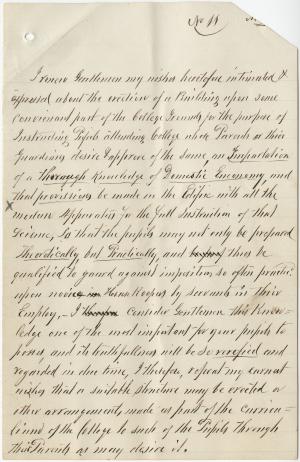 No 11
I renew Gentlemen my wishes heretofore intimated &
expressed about the erection of a Building upon some
convenient part of the College Grounds for the purpose of
Instructing Pupils attending College whose Parents or their
Guardians desire & approve of the same, an Impartation
of a Thorough Knowledge of Domestic Economy, and
that provisions be made in the Edifice with all the
modern Apparatus for the full Instruction of that
Science, So that the pupils may not only be prepared
Theoretically but Practically, and thus be
qualified to gaurd against imposition so often practic'
upon novice House Keepers by servants in their
Employ, - I consider Gentlemen this Know-
ledge one of the most important for your pupils to
possess and its truthfullness will be so verefied and
regarded in due time, I therefore, repeat my earnest
wishes that a suitable structure may be erected or
other arrangements made as part of the curricu-
lum of the College to such of the Pupils through
their Parents as may desire it.